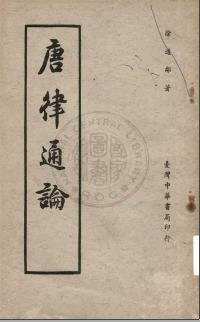 徐道鄰著
唐律通論
臺灣中華書局印行